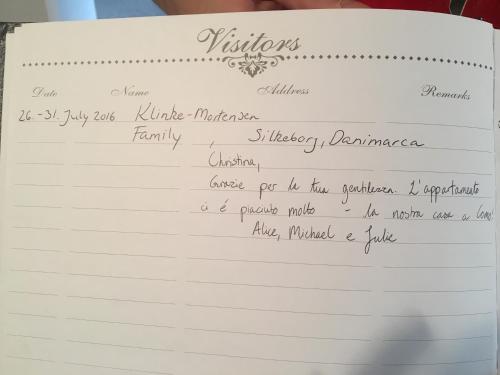 Visitors
Date Name Address Remarks
26.-31. July 2016 Klinke-Mortensen
Family, Silkeborg, Danimarca
Christina,
Grazie per la tua gentilezza. L'appartamento
ci é piaciuto molto - la nostra casa a Como!
Alice, Michael e Julie